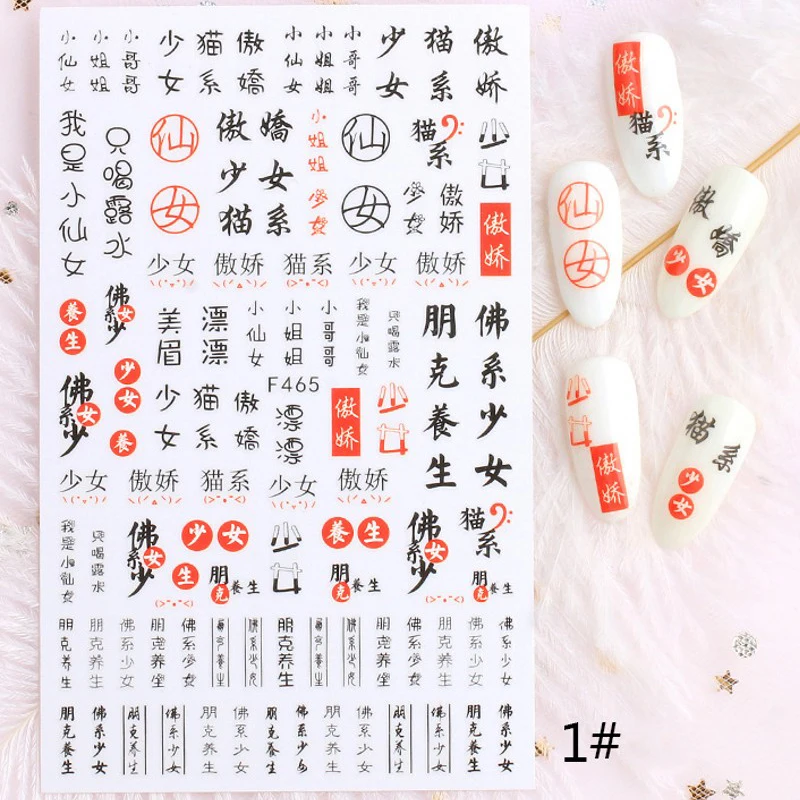 小仙女 小姐姐 小哥哥 少女 猫系 傲嬌 小仙女 小姐姐 小哥哥 少女 猫系 傲娇
我是小仙女 只喝露水 仙女 傲嬌少女猫系 小姐姐 少女 仙女 猫系 少女 傲娇 少女 傲娇
少女 傲娇 猫系 少女 傲娇
養生 佛系少女 美眉 漂漂 小仙女 小姐姐 小哥哥 我是小仙女 只喝露水 朋克養生 佛系少女
F465
佛系少女 少女 養 少女 猫系 傲娇 漂漂 傲娇 少女
少女 傲娇 猫系 少女 傲娇
我是小仙女 只喝露水 佛系少女 少女 生 朋克養生 少女 養生 朋克養生 佛系少女 猫系 朋克養生
朋克养生 朋克养生 佛系少女 朋克養生 佛系少女 朋克養生 佛系少女 朋克养生 朋克養生 佛系少女 朋克養生 佛系少女 朋克养生 佛系少女 佛系少女
朋克養生 佛系少女 朋克養生 佛系少女 朋克养生 佛系少女 朋克養生 佛系少女 朋克养生 佛系少女 朋克養生 佛系少女 朋克養生 佛系少女
傲娇
猫系
仙女
傲嬌
少女
少女
傲娇
猫系
少女
1#